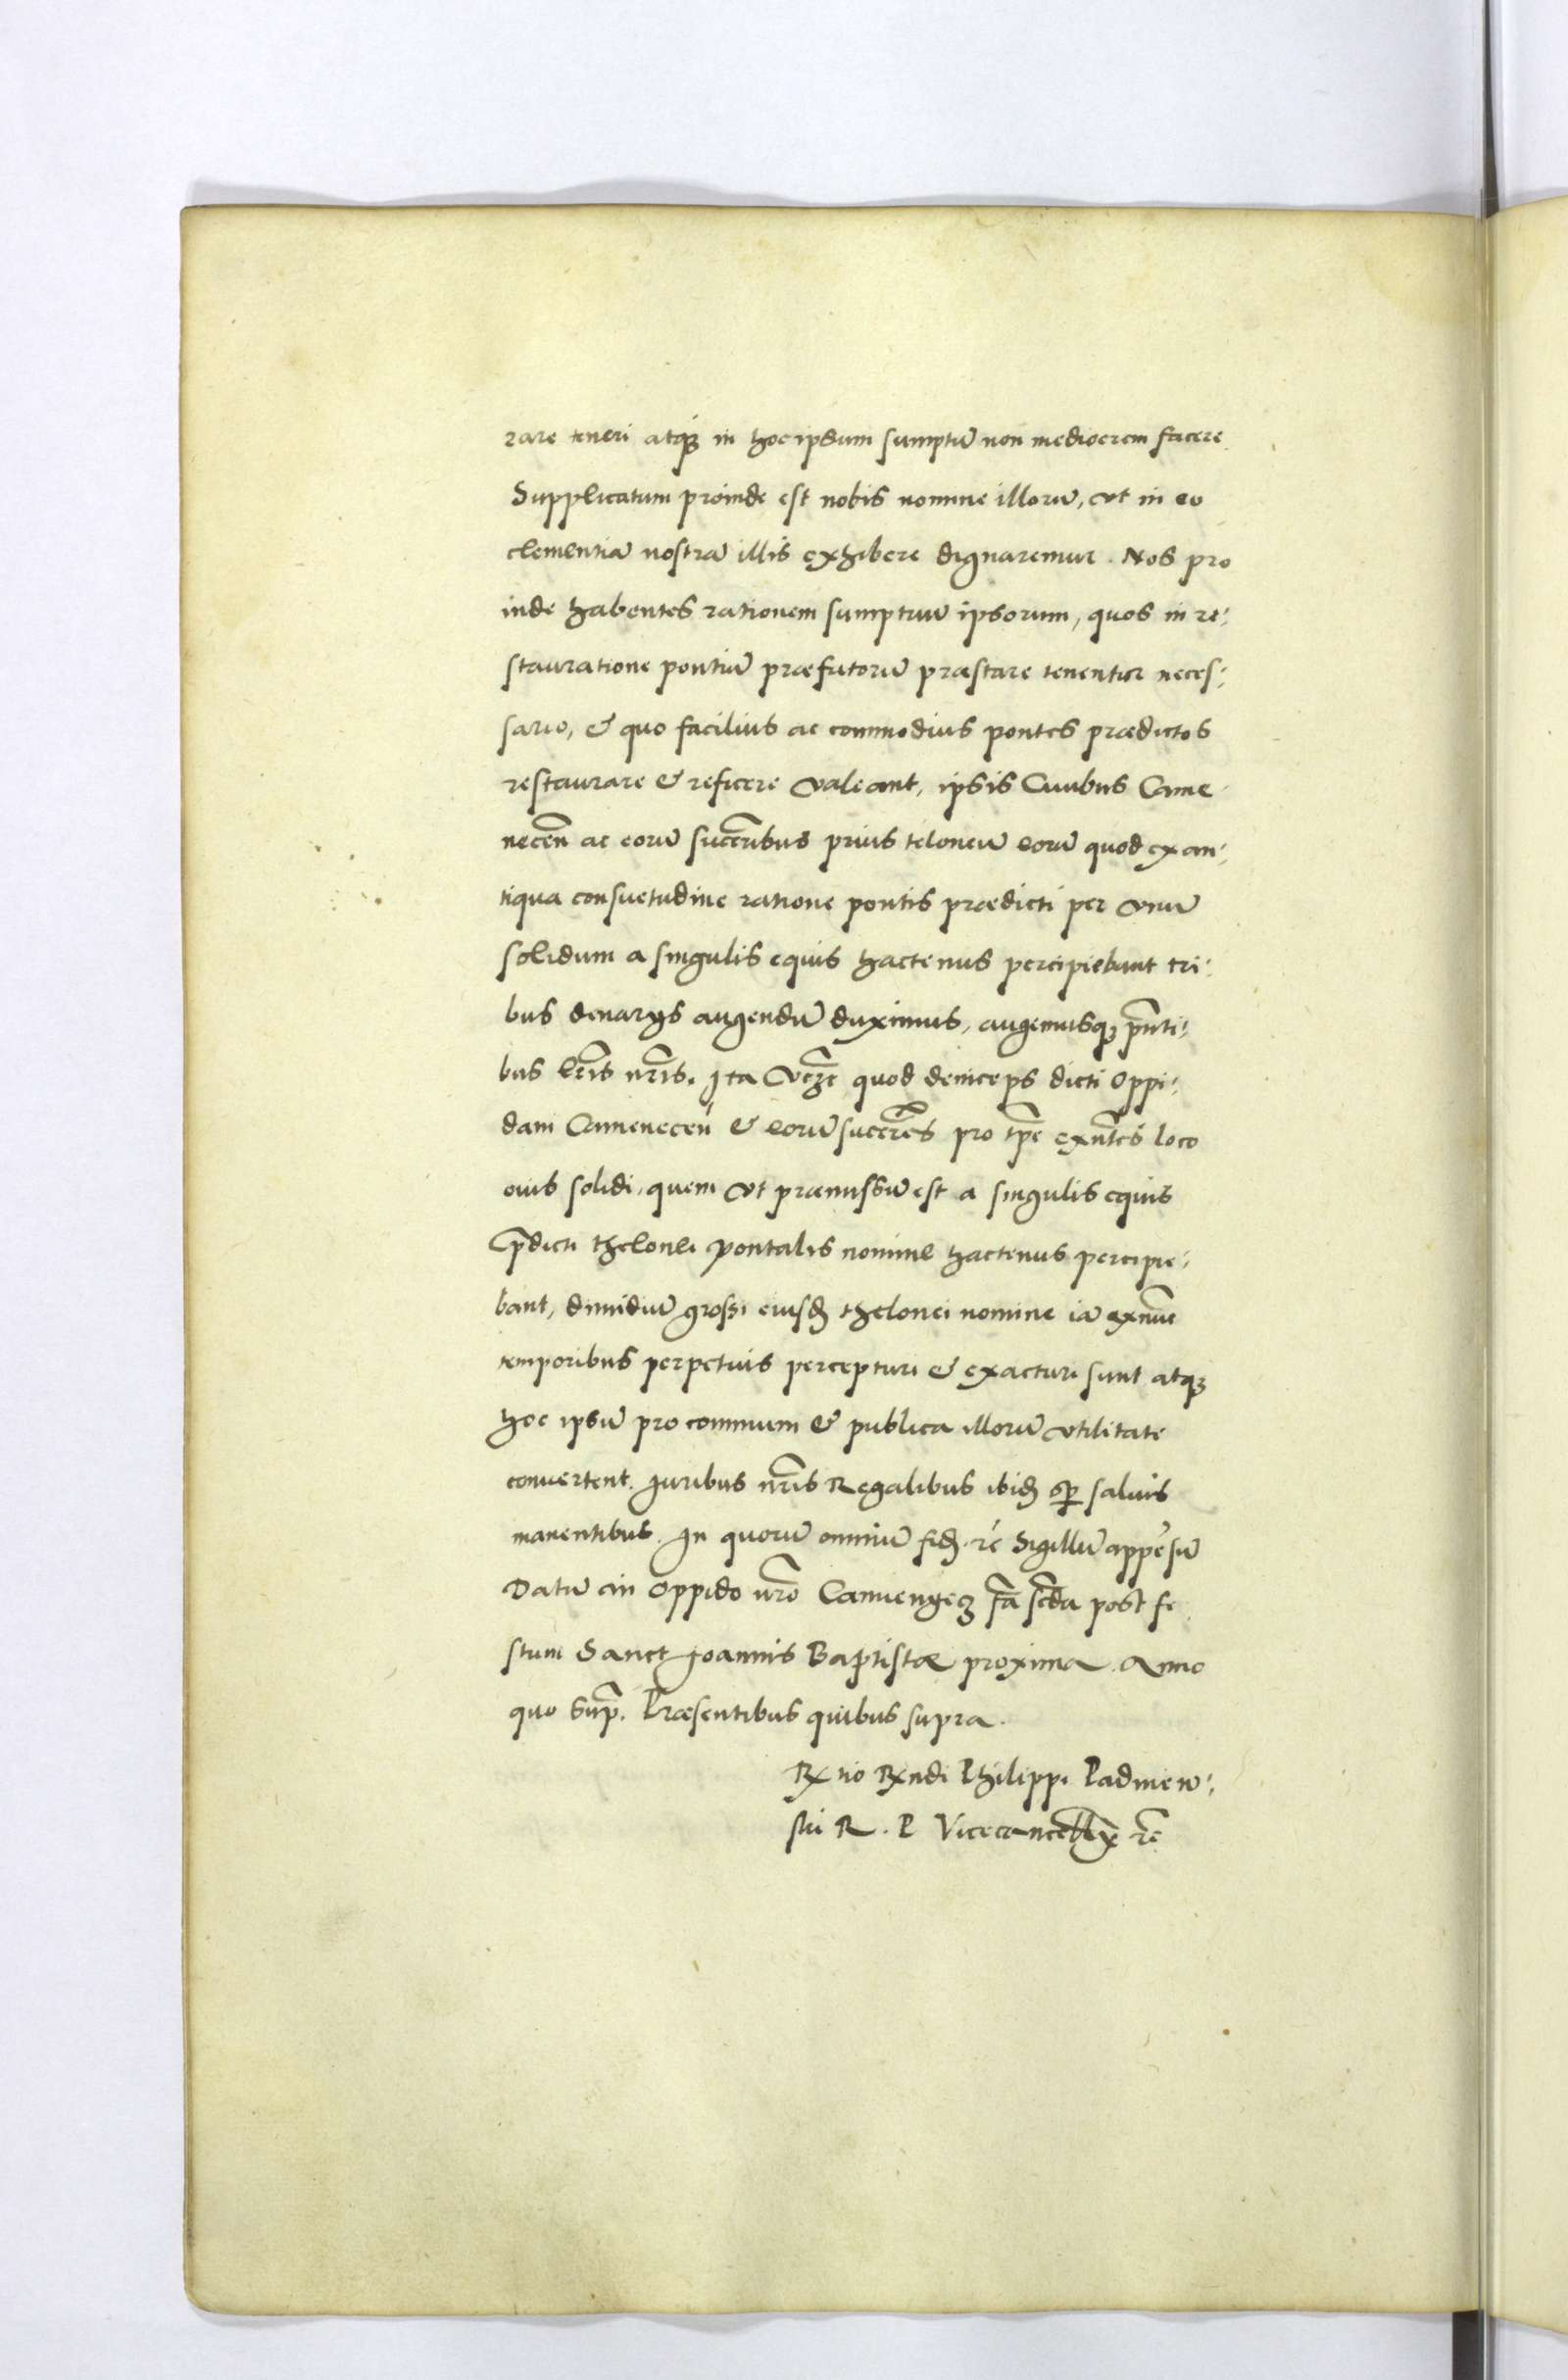 rare teneri atq₃ in hoc ipsum sumptū non mediocrem facere
Supplicatum proinde est nobis nomine illorū, vt in eo
clementiā nostrā illis exhibere dignaremur. Nos pro
inde habentes rationem sumptuū ipsorum, quos in re:
stauratione pontiū præfatorū præstare tenentur neces:
sario, & quo facilius ac commodius pontes prædictos
restaurare & reficere valeant, ipsis Ciuibus Came
necen̄ ac eorū succrībus prius teloneū eorū quod ex an:
tiqua consuetudine ratione pontis prædicti per vnū
solidum a singulis equis hactenus percipiebant tri:
bus denarijs augendū duximus, augemusq₃ pn̄ti:
bus lr̄is nr̄is. Ita quod deinceps dicti Oppi:
dani Camenecen̄ & eorū succr̄es pro tp̄e exn̄tes loco
vnius solidi, quem vt præmissū est a singulis equis
p̄dicti thelonei pontalis nomine hactenus percipie:
bant, dimidiū grossi eiusd thelonei nomine iā exnūc
temporibus perpetuis percepturi & exacturi sunt atq₃
hoc ipsū pro communi & publica illorū vtilitate
conuertent. Iuribus nr̄is Regalibus ibid sp̄ saluis
manentibus. In quorū omniū fid. rē Sigillū appēsū
Datū in Oppido nr̄o Camyenyecz fr̄a scd̄a post fe
stum Sancti Joannis Baptistæ proxima. Anno
quo sup̄. Præsentibus quibus supra.
Rx tio Rx ndi Philippi Padniew:
ski R. P Vicecancellx rē